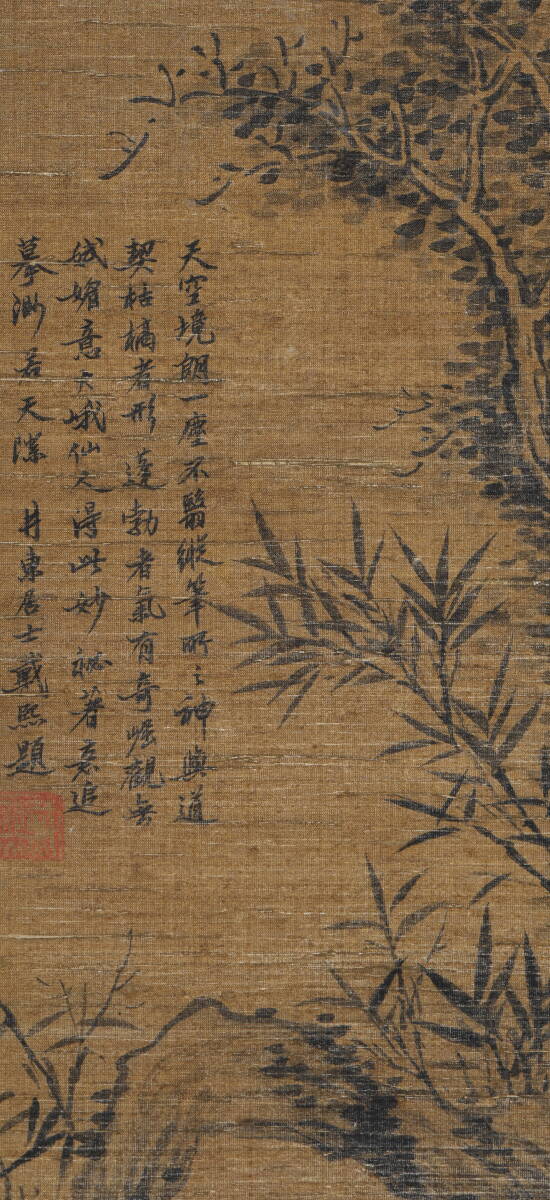 天空境朗一塵不翳縱筆所之神與道
契枯槁者形蓬勃者氣有奇崛觀無
娬媚意大峨仙人得此妙祕著意追
摹渺若天際 井東居士戴熙題